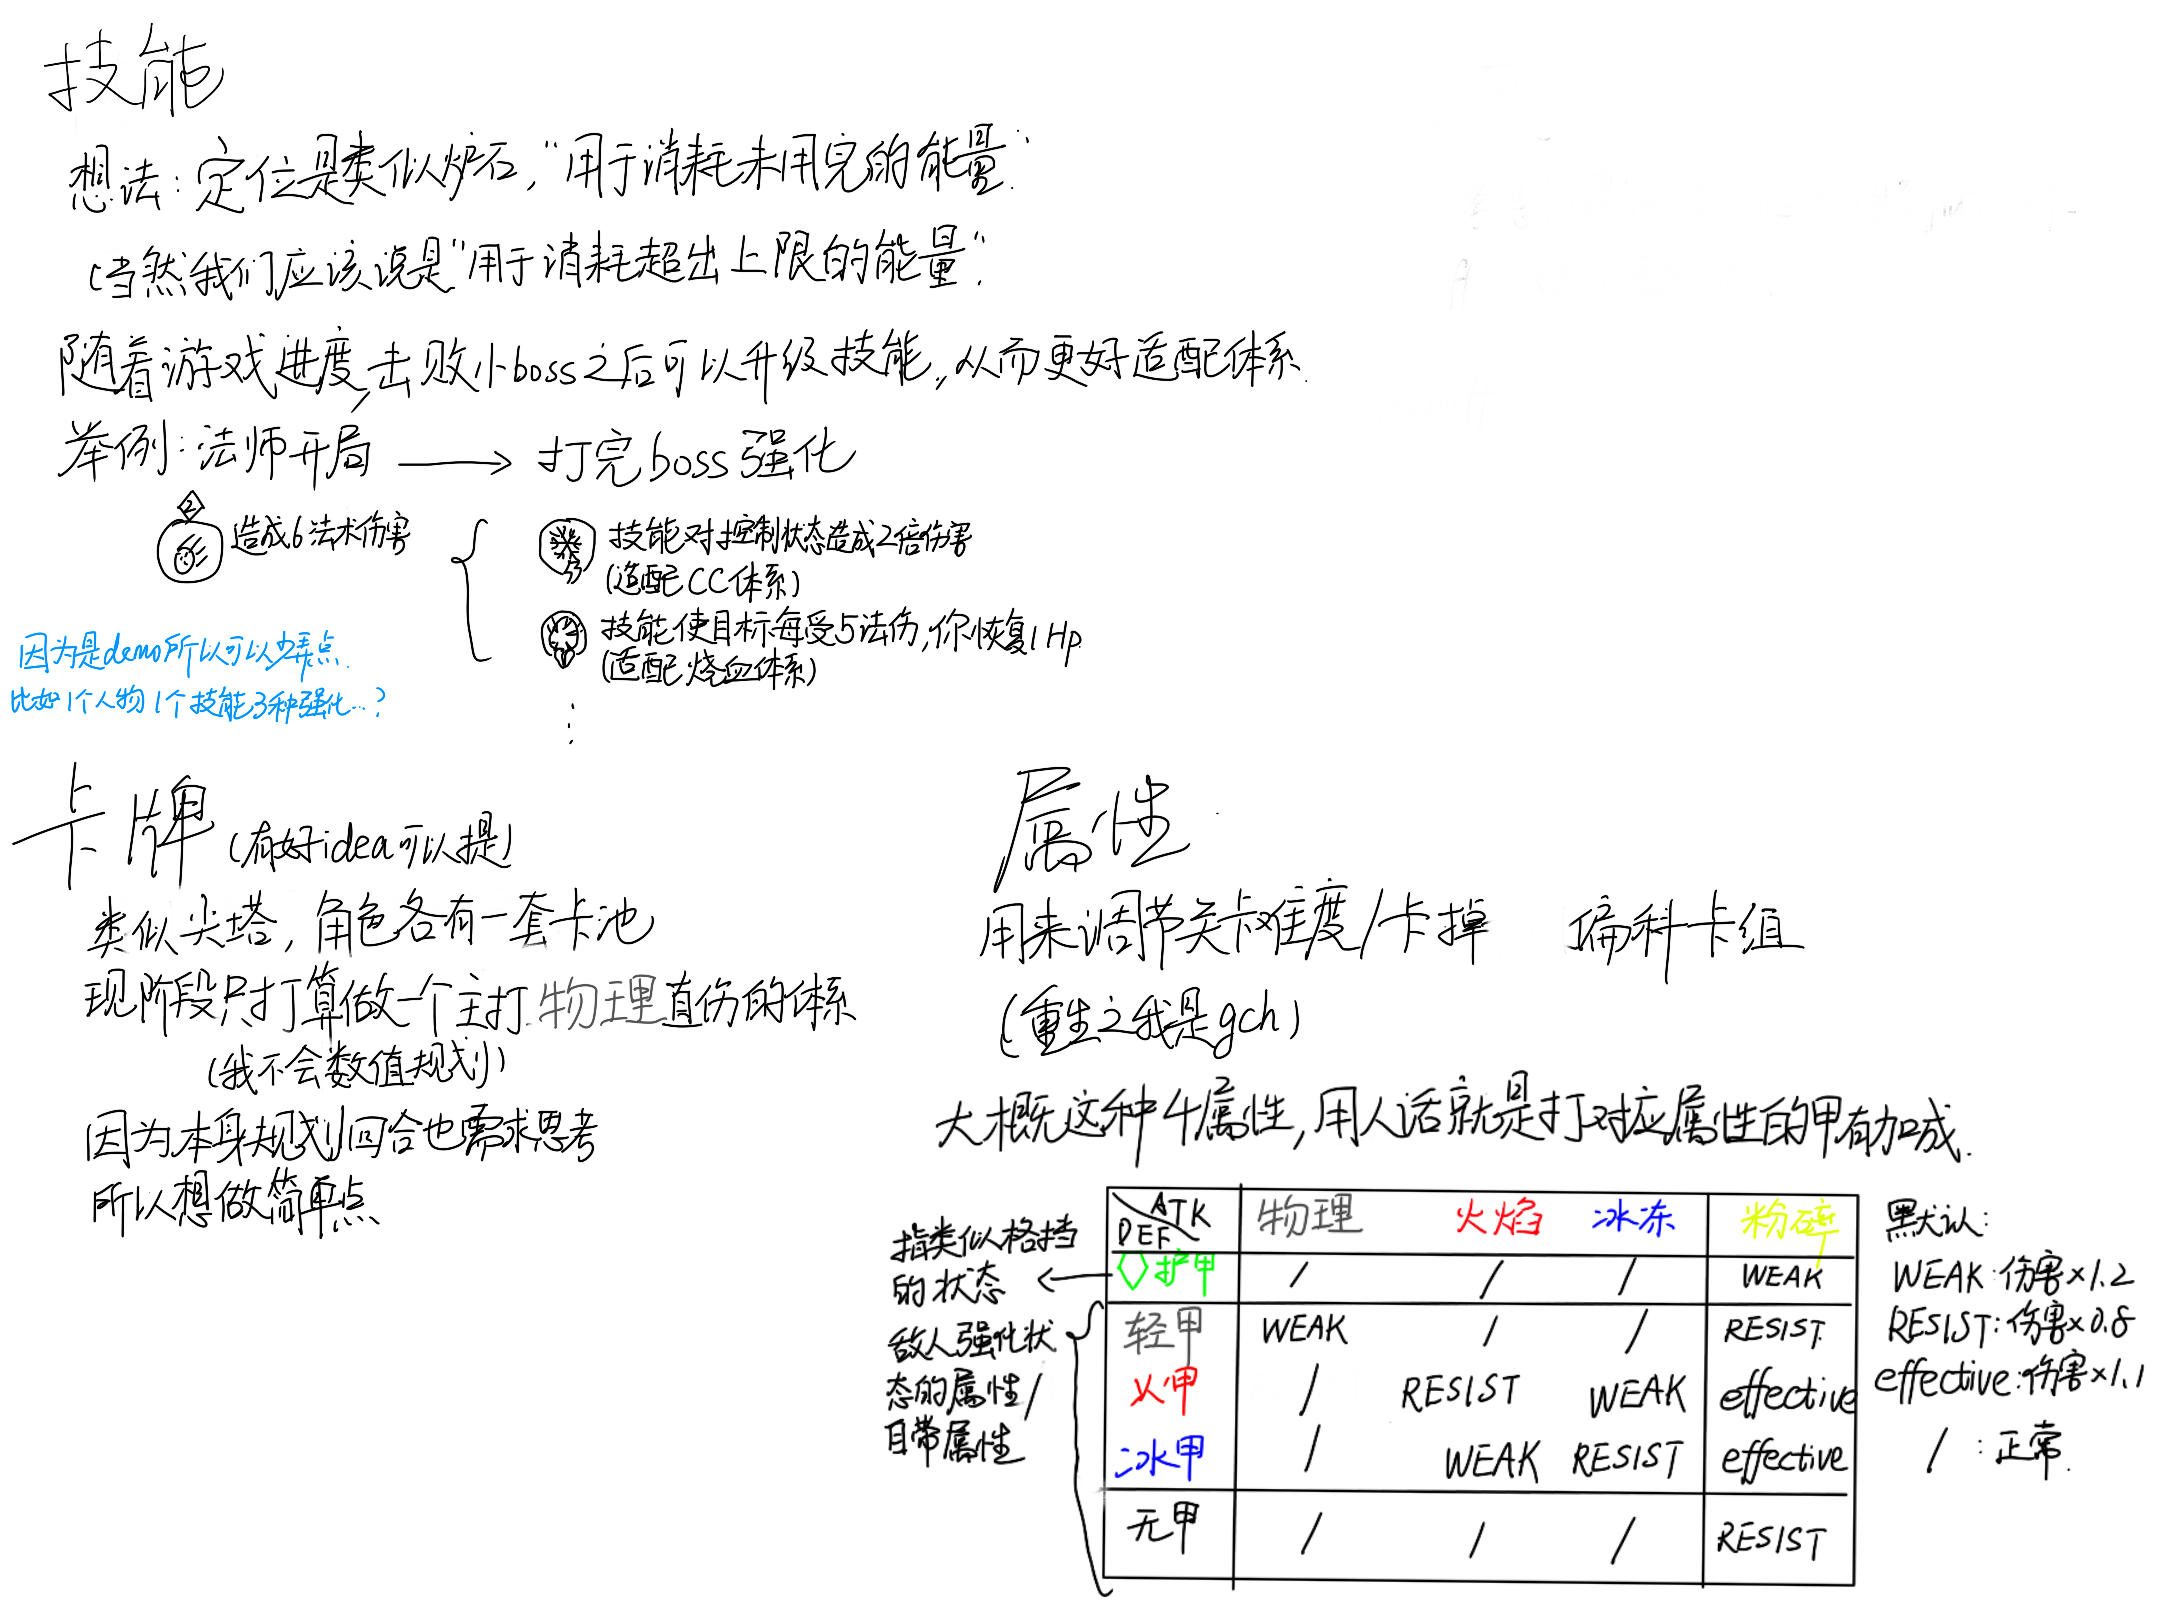 技能
想法:定位是类似炉石,"用于消耗未用完的能量"
(当然我们应该说是"用于消耗超出上限的能量".
随着游戏进度,击败小boss之后可以升级技能,从而更好适配体系.
举例:法师开局 → 打完boss强化
2
造成6法术伤害
技能对控制状态造成2倍伤害
(适配CC体系)
技能使目标每受5法伤,你恢复1Hp.
(适配烧血体系)
⋮
因为是demo所以可以少弄点.
比如1个人物1个技能3种强化...?
卡牌(有好idea可以提)
类似尖塔,角色各有一套卡池
现阶段只打算做一个主打物理直伤的体系
(我不会数值规划)
因为本身规划回合也需求思考
所以想做简单点
属性
用来调节关卡难度/卡掉 偏科卡组
(重生之我是gch)
大概这种4属性,用人话就是打对应属性的甲有加成.
ATK
DEF 物理 火焰 冰冻 粉碎
护甲 / / / WEAK
轻甲 WEAK / / RESIST
火甲 / RESIST WEAK effective
冰甲 / WEAK RESIST effective
无甲 / / / RESIST
指类似格挡
的状态
敌人强化状
态的属性/
自带属性
默认:
WEAK:伤害×1.2
RESIST:伤害×0.8
effective:伤害×1.1
/ :正常.